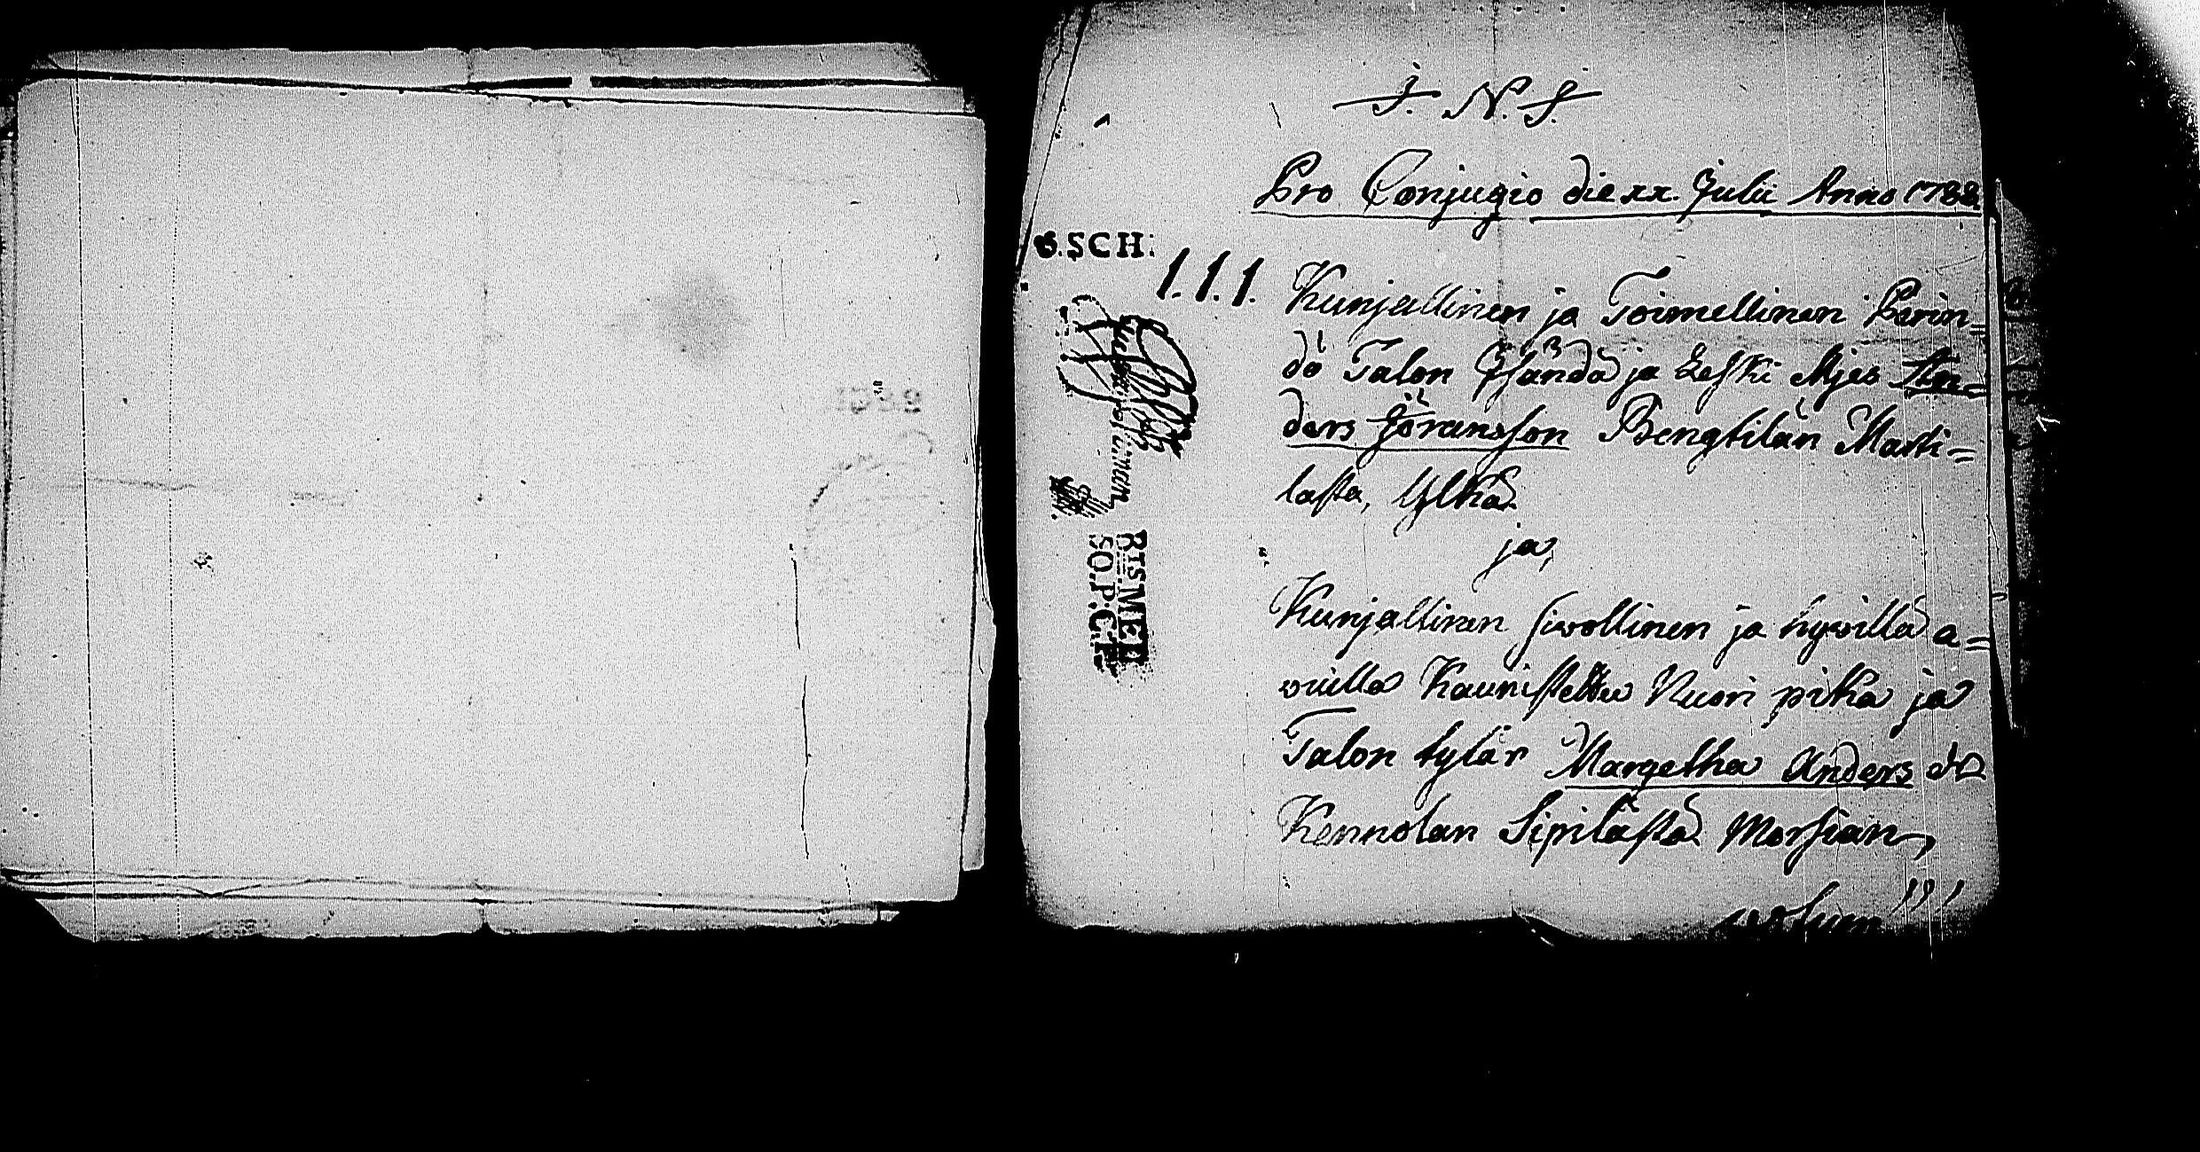 J. N. J.
Pro Conjugio die xx. Julii Anno 1788.
G.SCH:
1.1.1. Kunjallinen ja Toimellinen Perin=
dö Talon Isändä ja Leski Mjes An=
ders Jöransson Bengtilän Marti=
lasta, Ylkä
ja,
Kunjallinen siwollinen ja hywillä a=
wuilla Kaunistettu Nuori pika ja
Talon tytär Margetha Anders dr
Kennolan Sipilästä Morsian,
RISMED
SO.P.C.F.